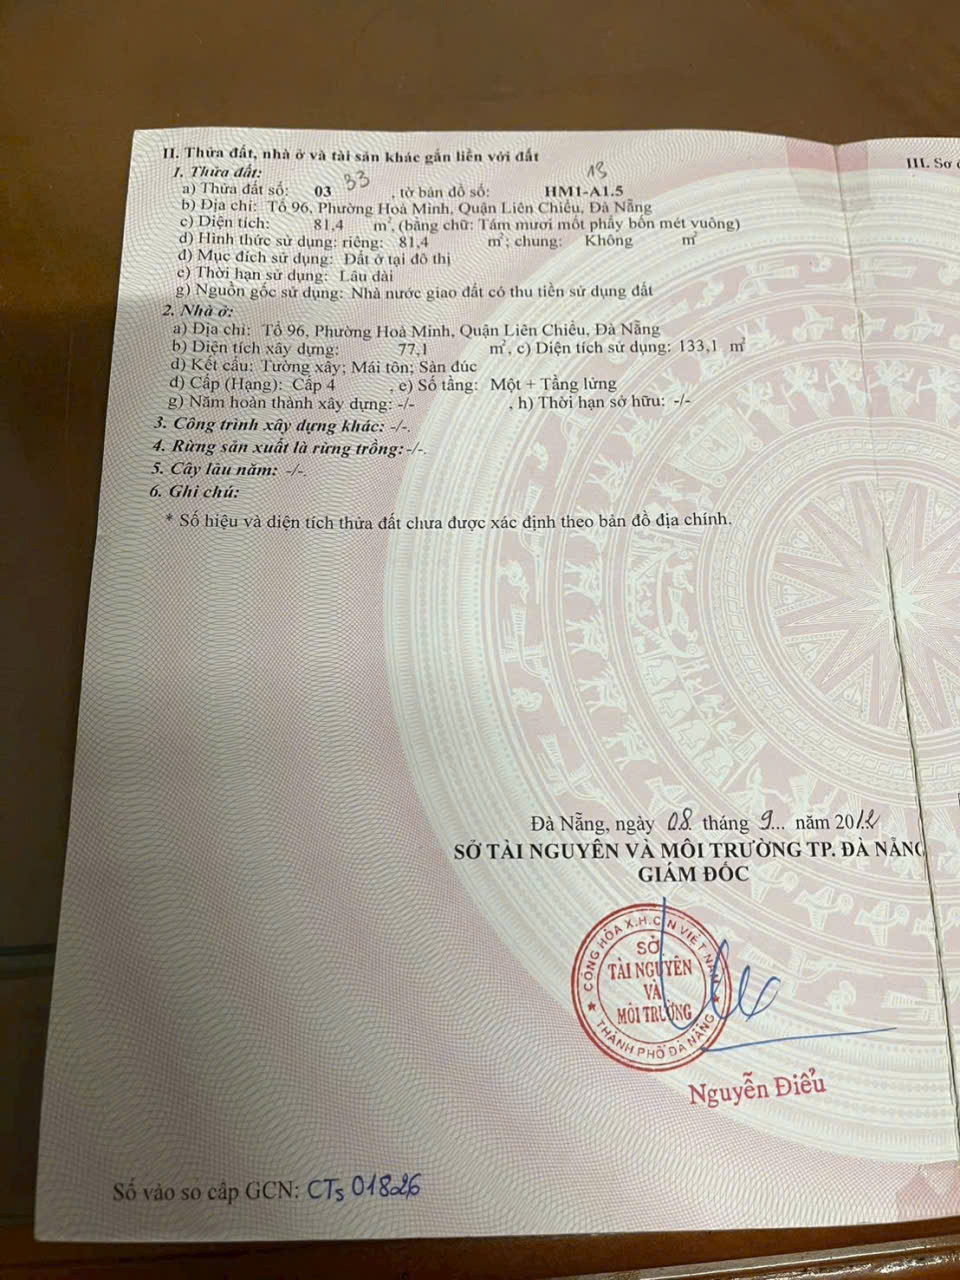 II. Thửa đất, nhà ở và tài sản khác gắn liền với đất
III. Sơ
1. Thửa đất:
33 13
a) Thửa đất số: 03 , tờ bản đồ số: HM1-A1.5
b) Địa chỉ: Tổ 96, Phường Hoà Minh, Quận Liên Chiểu, Đà Nẵng
c) Diện tích: 81,4 m², (bằng chữ: Tám mươi mốt phẩy bốn mét vuông)
d) Hình thức sử dụng: riêng: 81,4 m²; chung: Không m²
đ) Mục đích sử dụng: Đất ở tại đô thị
e) Thời hạn sử dụng: Lâu dài
g) Nguồn gốc sử dụng: Nhà nước giao đất có thu tiền sử dụng đất
2. Nhà ở:
a) Địa chỉ: Tổ 96, Phường Hoà Minh, Quận Liên Chiểu, Đà Nẵng
b) Diện tích xây dựng: 77,1 m², c) Diện tích sử dụng: 133,1 m²
d) Kết cấu: Tường xây; Mái tôn; Sàn đúc
đ) Cấp (Hạng): Cấp 4 , e) Số tầng: Một + Tầng lửng
g) Năm hoàn thành xây dựng: -/- , h) Thời hạn sở hữu: -/-
3. Công trình xây dựng khác: -/-.
4. Rừng sản xuất là rừng trồng: -/-.
5. Cây lâu năm: -/-.
6. Ghi chú:
* Số hiệu và diện tích thửa đất chưa được xác định theo bản đồ địa chính.
Đà Nẵng, ngày 08 tháng 9... năm 2012
SỞ TÀI NGUYÊN VÀ MÔI TRƯỜNG TP. ĐÀ NẴNG
GIÁM ĐỐC
CỘNG HÒA X.H.C.N VIỆT NAM
SỞ
TÀI NGUYÊN
VÀ
MÔI TRƯỜNG
THÀNH PHỐ ĐÀ NẴNG
Nguyễn Điểu
Số vào sổ cấp GCN: CTs 01826